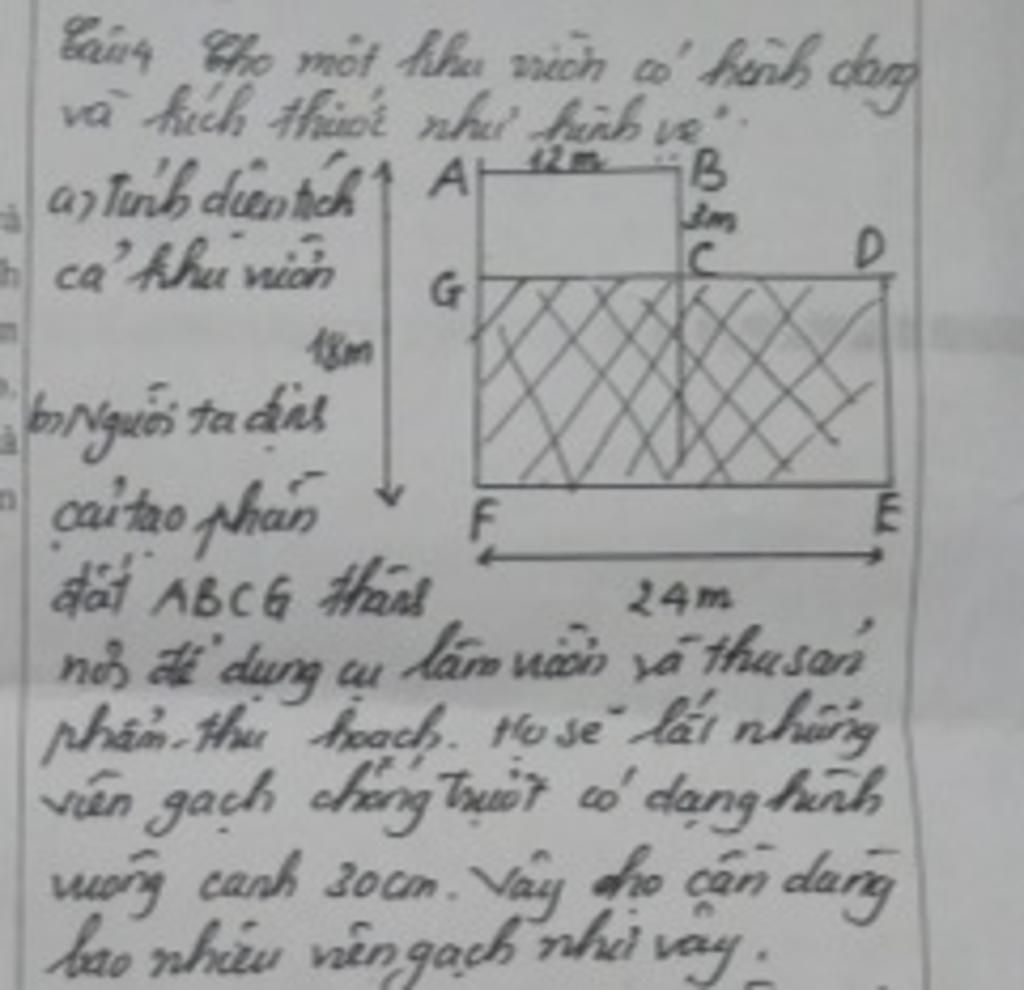 Câu 4 Cho một khu vườn có hình dạng
và kích thước như hình vẽ.
12m
A
B
a) Tính diện tích
3m
cả khu vườn
C
D
G
18m
b) Người ta định
cải tạo phần
F
E
24m
đất ABCG thành
nơi để dụng cụ làm vườn và thu sản
phẩm thu hoạch. Họ sẽ lát những
viên gạch chống trượt có dạng hình
vuông cạnh 30cm. Vậy họ cần dùng
bao nhiêu viên gạch như vậy.